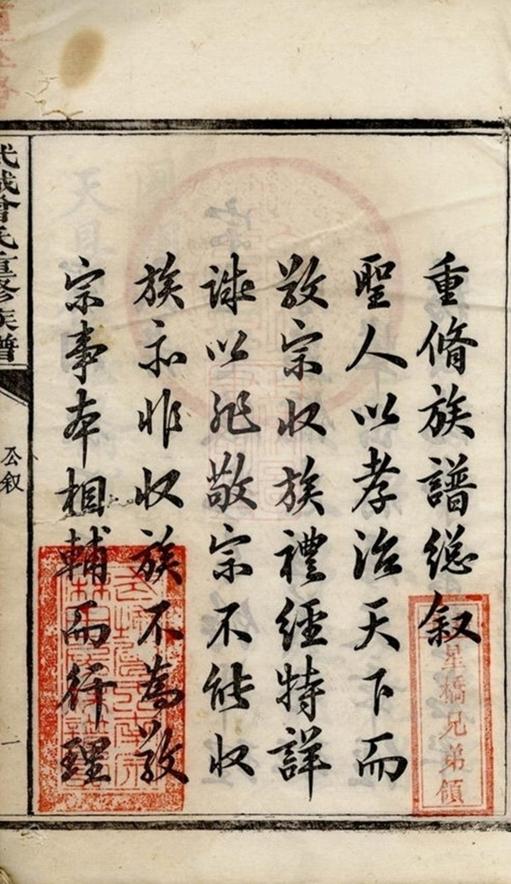 重脩族譜總叙
聖人以孝治天下而
敬宗收族禮經特詳
誠以非敬宗不能收
族而非收族不為敬
宗事本相輔而行理
武城曾氏重修族譜
公叙
一
星橋兄弟領